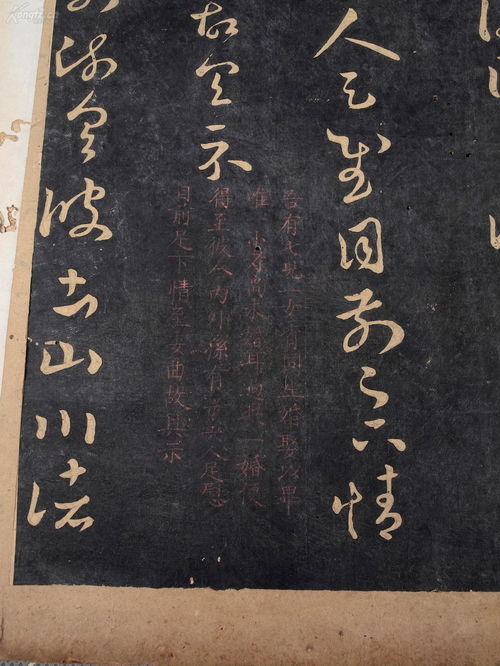 人足慰目前足下情
故具示
疏具彼土山川諸
吾有七兒一女皆同生婚娶以畢
唯一小者尚未婚耳過此一婚便
得至彼今內外孫有十六人足慰
目前足下情至委曲故具示